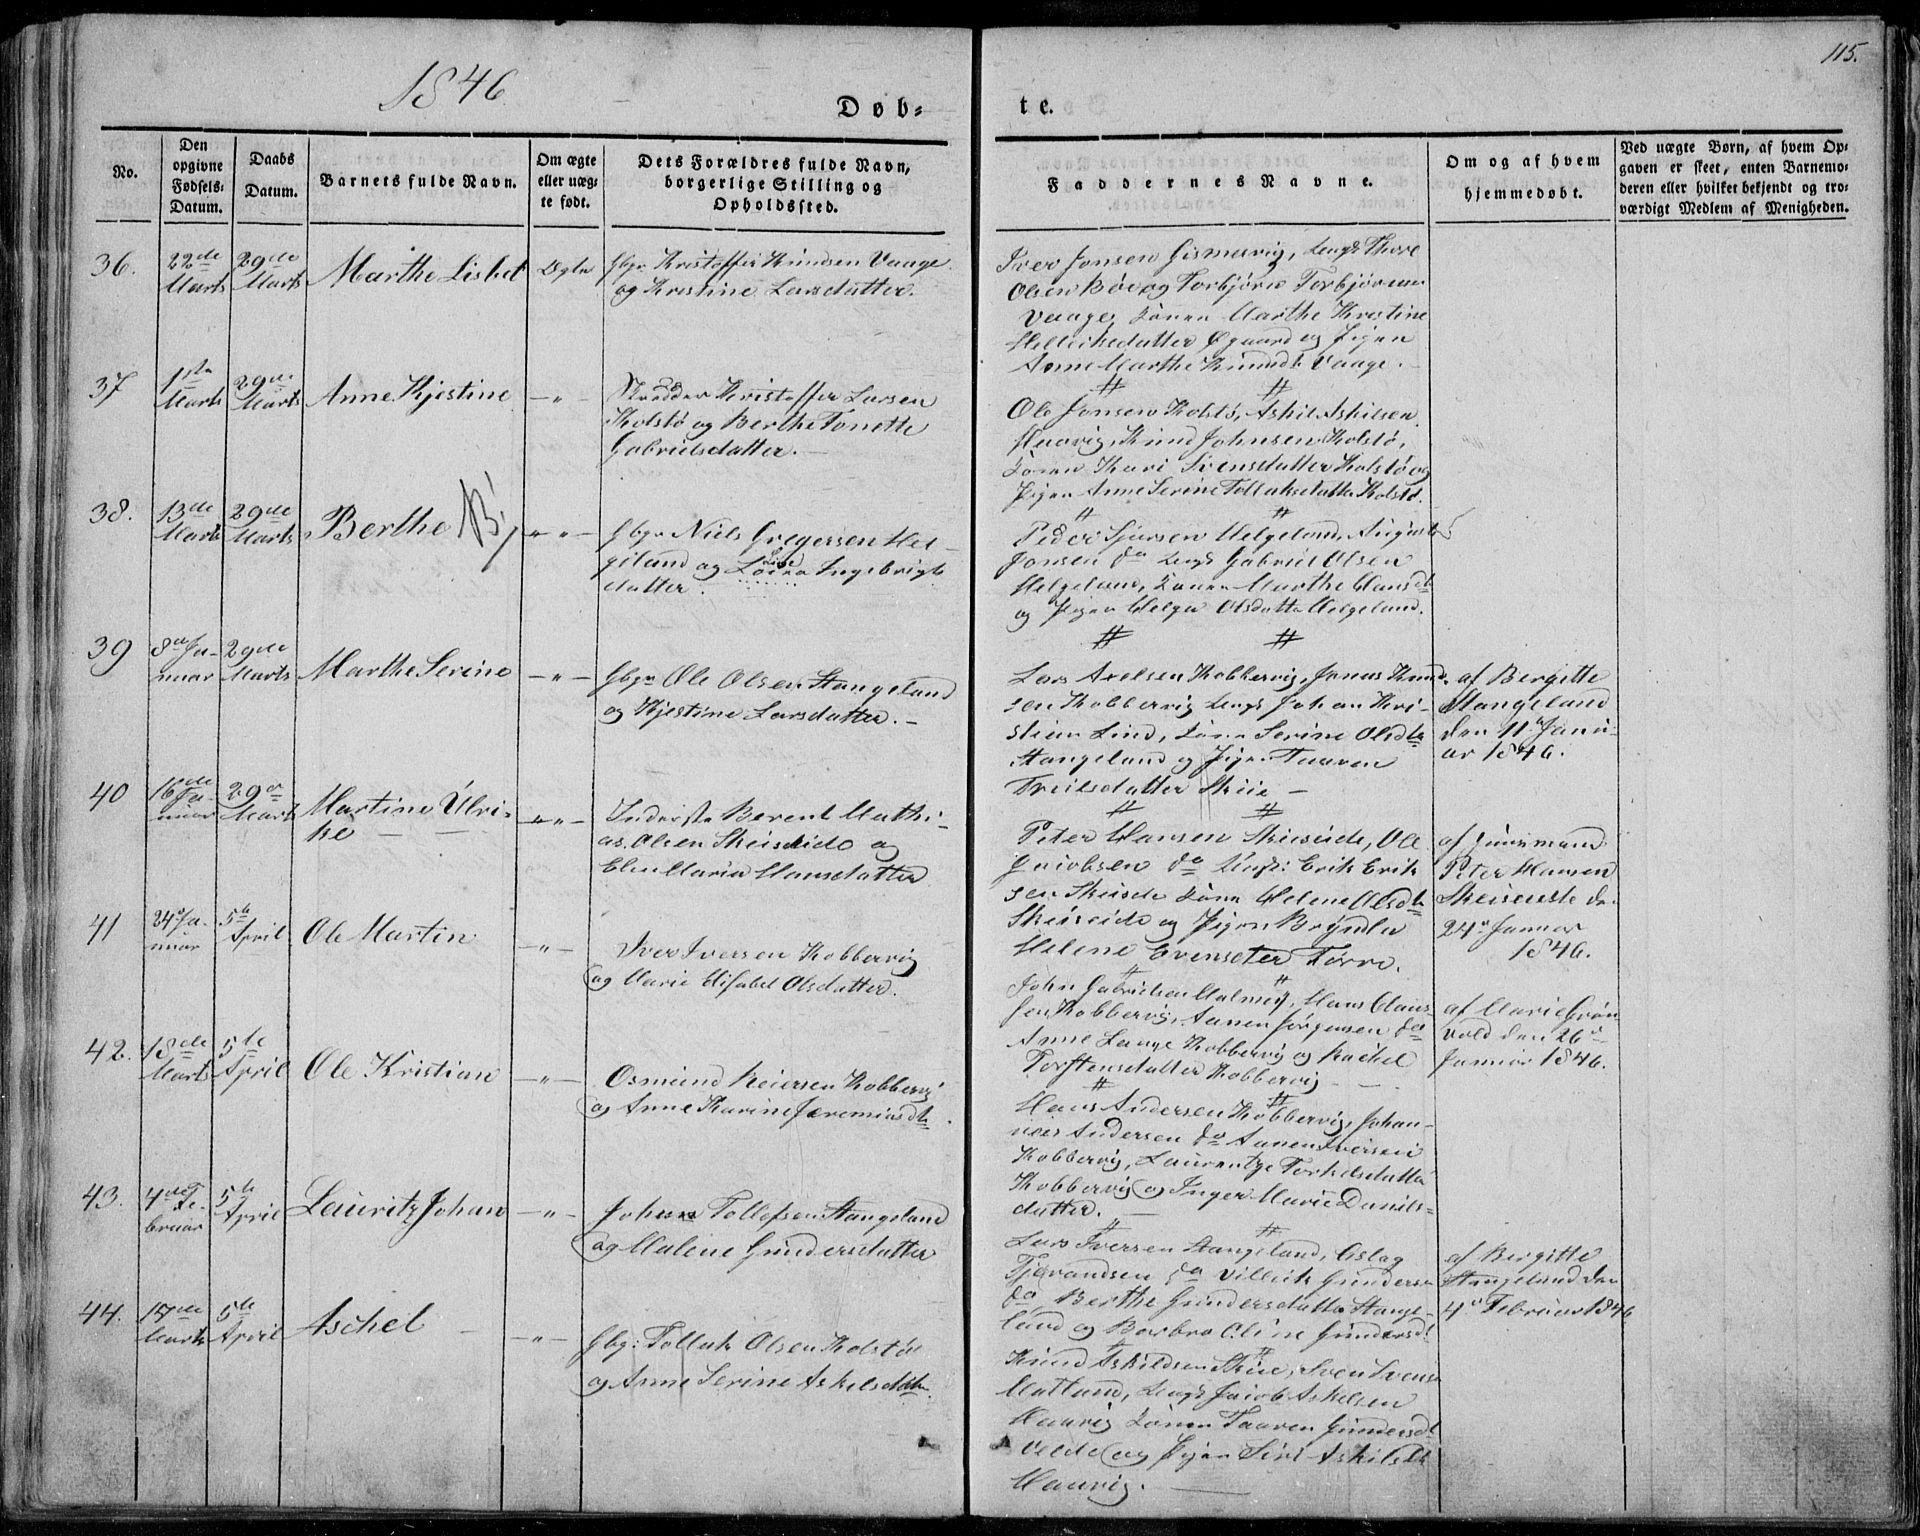 115.
1846
Døb-
te.
No.
Den opgivne Fødsels-Datum.
Daabs Datum.
Barnets fulde Navn.
Om ægte eller uægte født.
Dets Forældres fulde Navn, borgerlige Stilling og Opholdssted.
Faddernes Navne.
Om og af hvem hjemmedøbt.
Ved uægte Børn, af hvem Opgaven er skeet, enten Barnemoderen eller hvilket bekjendt og troværdigt Medlem af Menigheden.
36.
22de Marts
29de Marts
Marthe Lisbet
Ægte
Gbr. Kristoffer Knudsen Vaage
og Kristine Larsdatter.
Iver Jonsen Gismervig, Ungk. Thore
Olsen Bø og Torbjørn Torbjørnsen
Vaage, Konen Marthe Kristine
Helliksdatter Øgaard og Pigen
Anne Marthe Knudsdt. Vaage.
37
1ste Marts
29de Marts
Anne Kjestine
— " —
Skrædder Kristoffer Larsen
Kolstø og Berthe Tonette
Gabrielsdatter. —
Ole Jonsen Kolstø, Askil Askilsen
Haavig, Knud Johnsen Kolstø,
Konen Kari Svensdatter Kolstø og
Pigen Anne Serine Tollaksdatter Kolstø.
38.
13de Marts
29de Marts
Berthe
— " —
Gbr. Niels Gregersen Hel-
geland og Ingebrigts
datter.
Peder Sjursen Helgeland, August
Jonsen do Ungk. Gabriel Olsen
Helgeland, Konen Marthe Hansdt.
og Pigen Helga Olsdatter Helgeland.
39
8de Ja-
nuar
29de Marts
Marthe Serine
— " —
Gbr. Ole Olsen Stangeland
og Kjestine Larsdatter. —
Lars Axelsen Kobbervig, Jonas Knud-
sen Kobbervig Ungk. Johan Kri-
stian Lind, Konen Serine Olsdt.
Stangeland og Pigen Taaren
Troilsdatter Skeie —
af Bergitte
Stangeland
den 11te Janu-
ar 1846.
40
16de Ja-
nuar
29de Marts
Martine Ulri-
ke
— " —
Inderste Berent Mathi-
as Olsen Skeiseide og
Elen Maria Hansdatter
Peter Hansen Skeiseide, Ole
Jacobsen do Ungk: Erik Erik
sen Skeiseide Konen Helene Olsdt.
Skeiseide og Pigen
Helene Evensdter Førre.
af Huusmand
Peter Hansen
Skeiseide den
24de Januar
1846.
41
24de Ja-
nuar
5te April
Ole Martin
— " —
Iver Iversen Kobbervig
og Marie Elisabet Olsdatter.
John Gabrielsen Malmei, Hans Claus-
sen Kobbervig, Aanen Jørgensen do
Anne Lange Kobbervig og Rachel
Torstensdatter Kobbervig
af Marie Grøn-
vold den 26de
Januar 1846.
42.
18de Marts
5te April
Ole Kristian
— " —
Osmund Reiersen Kobbervig
og Anne Karine Jeremiasdt.
Hans Andersen Kobbervig, Johan-
nes Andersen do Aanen Iversen
Kobbervig, Laurentze Torkelsdatter
Kobbervig og Inger Marie Daniels-
datter.
43.
4de Fe-
bruar
5te April
Lauritz Johan
— " —
Johan Tollefsen Stangeland
og Malene Gundersdatter
Lars Iversen Stangeland, Aslag
Tjerandsen do Villeik Gundersen
do Berthe Gundersdatter Stange-
land og Barbro Eline Gundersdt.
af Bergitte
Stangeland den
4de Februar 1846
44.
17de Marts
5te April
Aschel
— " —
Gbr: Tollak Olsen Kolstø
og Anne Serine Askelsdatter.
Knud Askildsen Skeie, Sven Svensen
Matland, Ungk. Jacob Askelsen
Haavig Konen Taaren Gundersdt.
Velde og Pigen Siri Askilsdt.
Haavig.